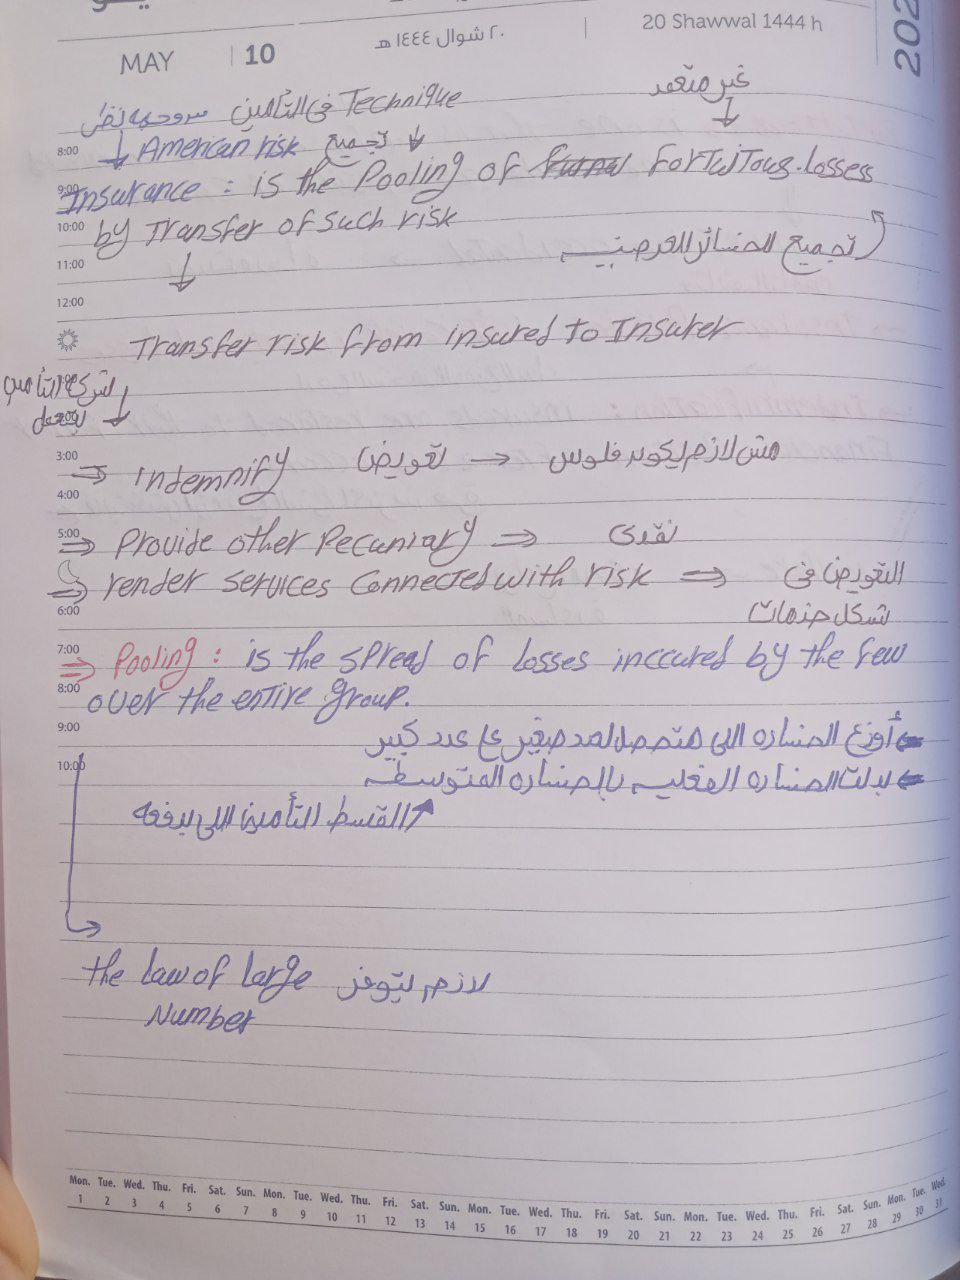 20 Shawwal 1444 h
٢٠ شوال ١٤٤٤ هـ
MAY 10
202
غير متعمد
من وجهة نظر Technique فى التأمين
8:00 American risk تجميع
9:00 Insurance : is the Pooling of Fortuitous. lossess
10:00 by Transfer of such risk
تجميع الخسائر العرضيه
11:00
12:00
Transfer risk from insured to Insurer
لشركة التأمين
3:00 ⇒ Indemnify تعويض → مش لازم ليكون فلوس
4:00
5:00 ⇒ Provide other Pecuniary ⇒ نقدى
⇒ render services Connected with risk ⇒ التعويض فى
6:00 شكل خدمات
7:00 ⇒ Pooling : is the spread of losses inccured by the few
8:00 over the entire group.
9:00 ← أوزع الخساره اللى هتحصل لعدد صغير على عدد كبير
10:00 ← بدلت الخساره الفعليه بالخساره المتوسطه
القسط التأمين اللى بدفعه
the law of large لازم يتوفر
Number
Mon. Tue. Wed. Thu. Fri. Sat. Sun. Mon. Tue. Wed. Thu. Fri. Sat. Sun. Mon. Tue. Wed. Thu. Fri. Sat. Sun. Mon. Tue. Wed. Thu. Fri. Sat. Sun. Mon. Tue. Wed.
1 2 3 4 5 6 7 8 9 10 11 12 13 14 15 16 17 18 19 20 21 22 23 24 25 26 27 28 29 30 31